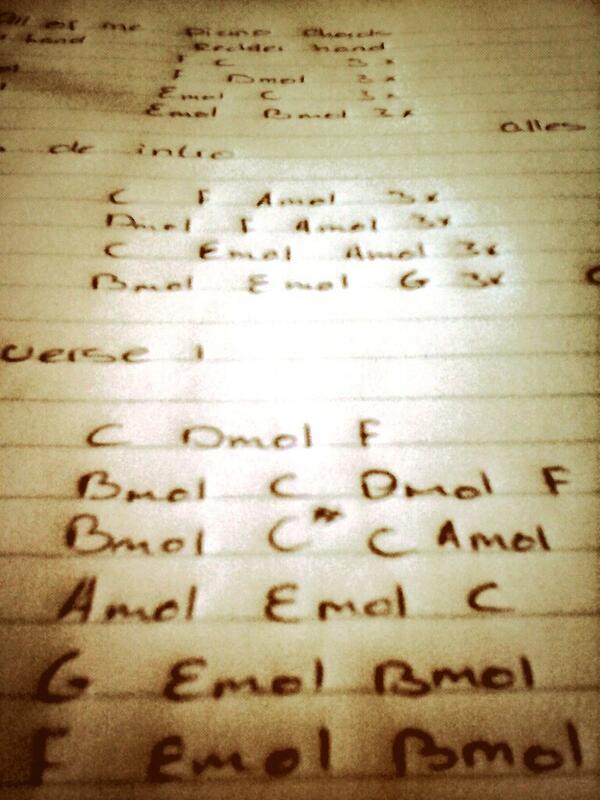 All of me Piano Chords
hand Rechter hand
F C 3x
F Dmol 3x
Emol C 3x
Emol Bmol 2x
alles
de intro
C F Amol 3x
Dmol F Amol 3x
C Emol Amol 3x
Bmol Emol G 3x C
verse 1
C Dmol F
Bmol C Dmol F
Bmol C# C Amol
Amol Emol C
G Emol Bmol
F Emol Bmol